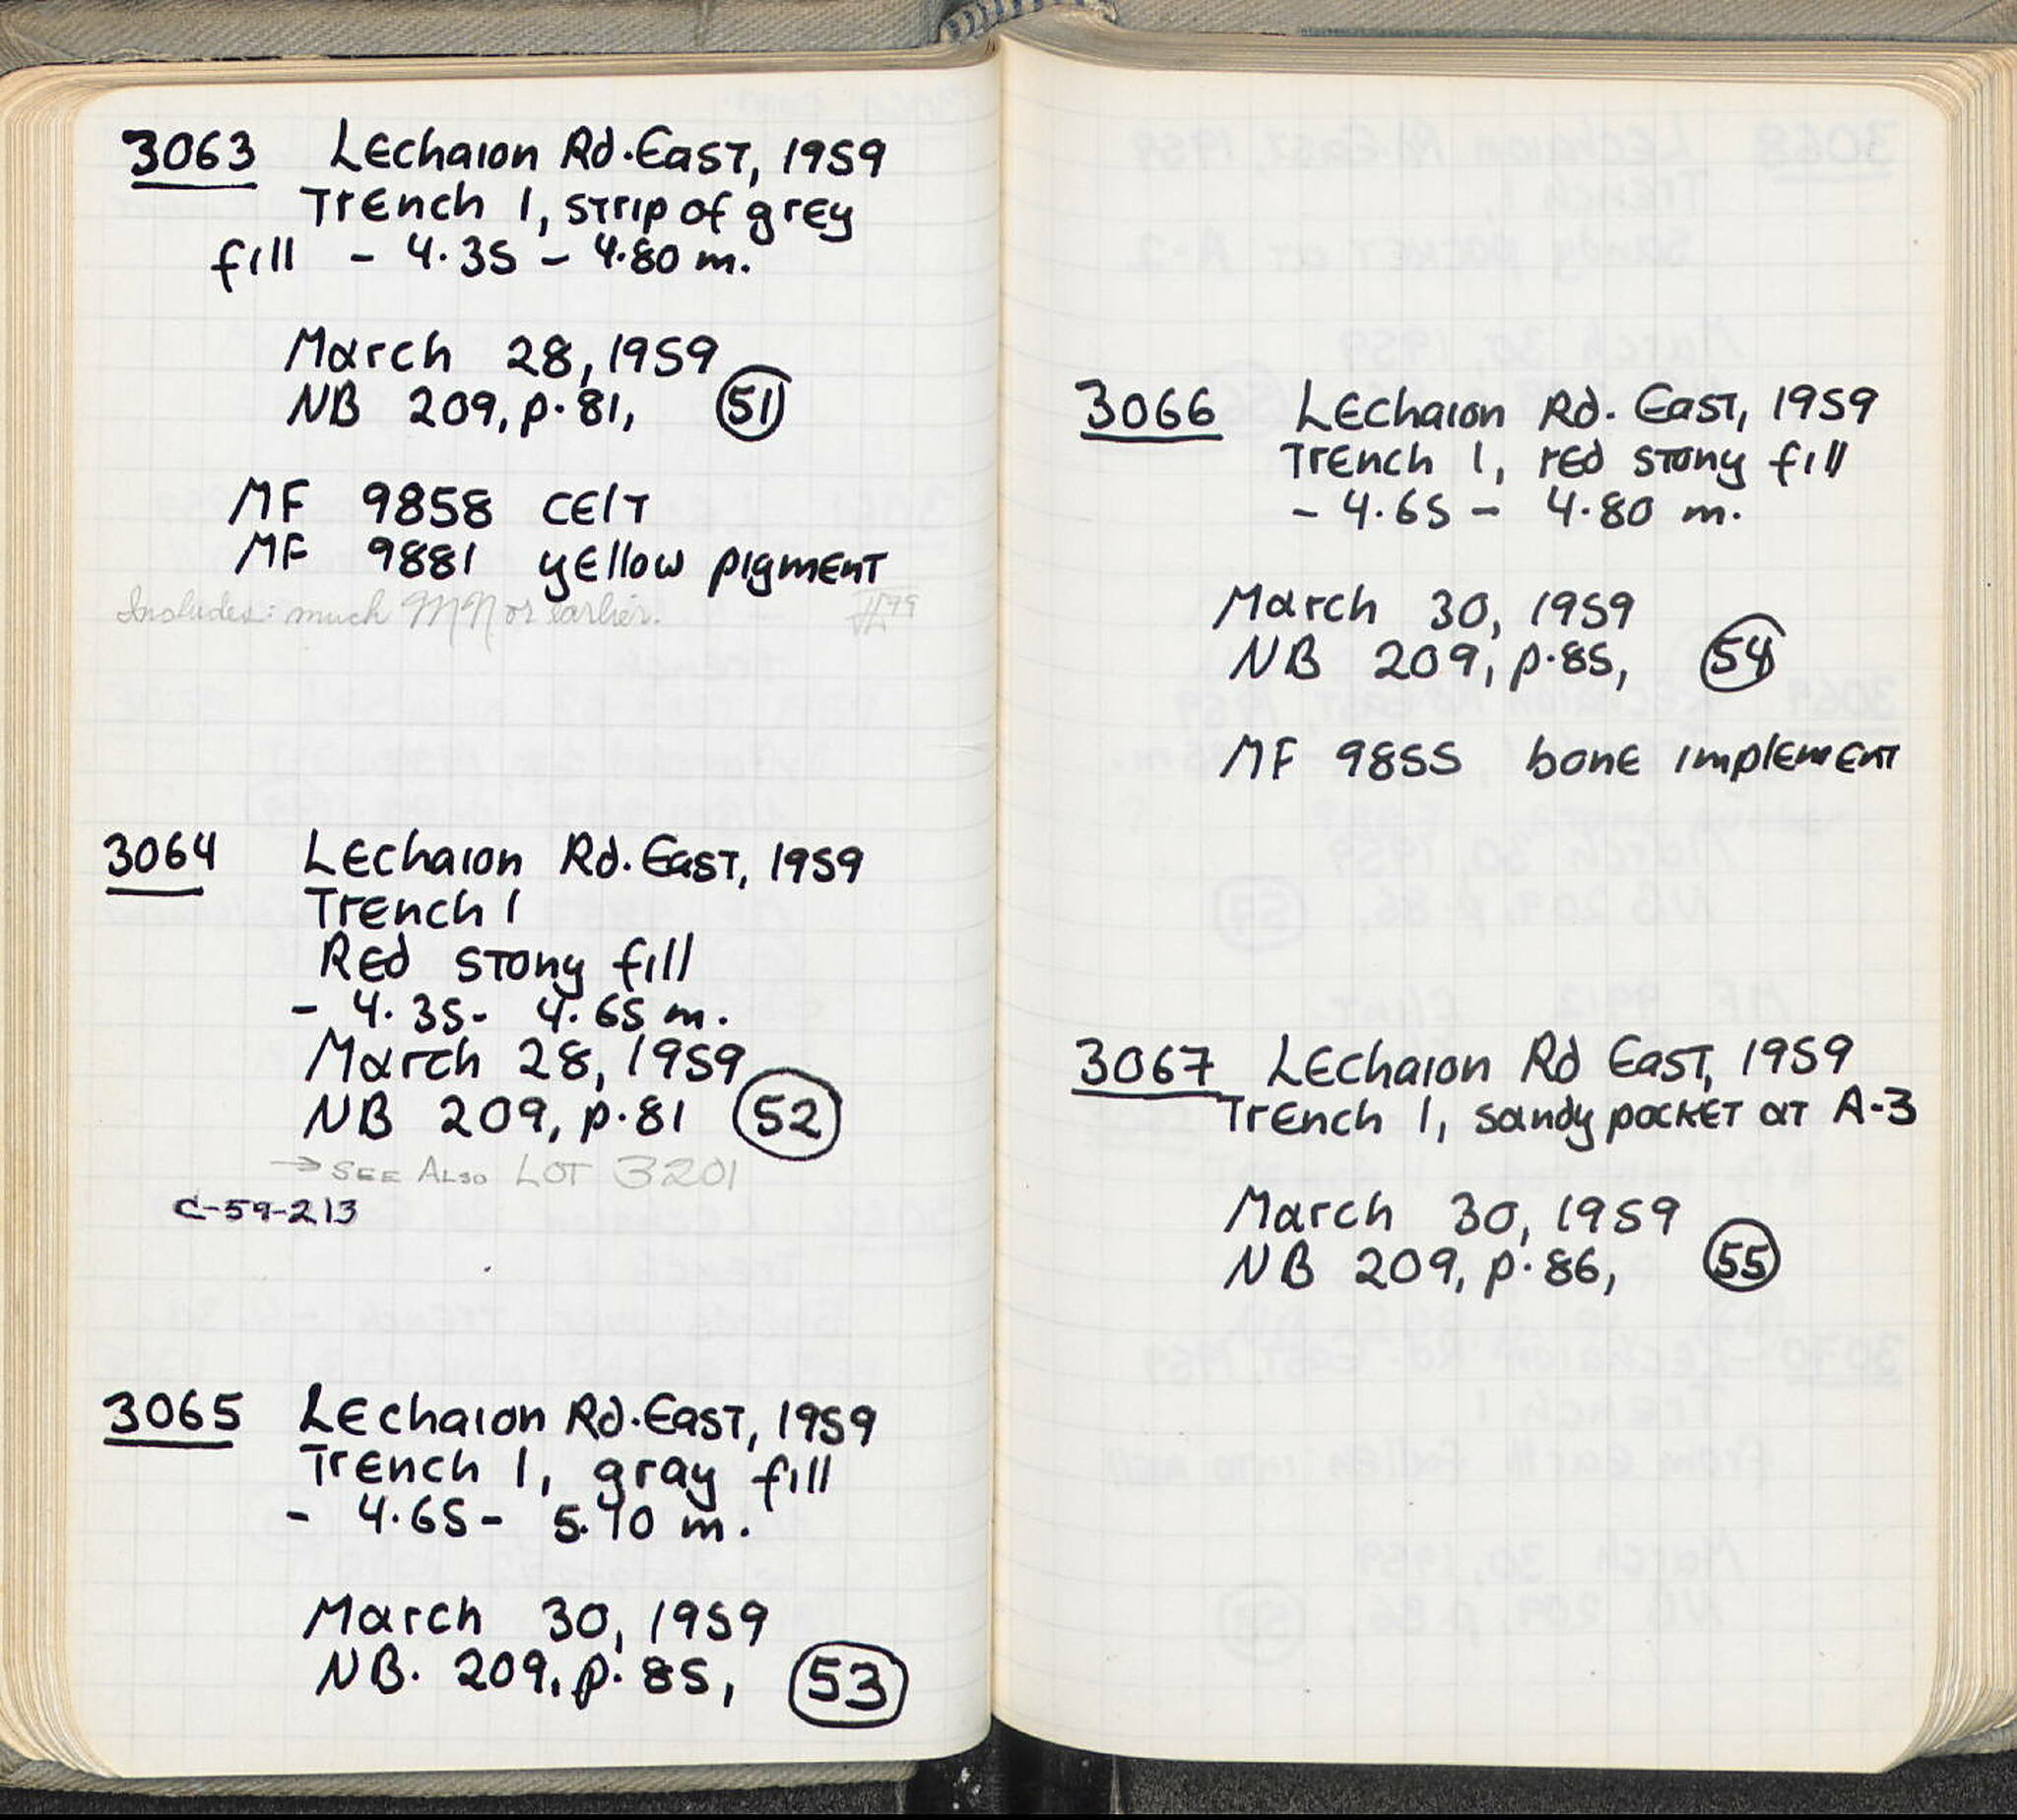 3063 Lechaion Rd. East, 1959
Trench 1, strip of grey
fill - 4.35 - 4.80 m.
March 28, 1959
NB 209, p. 81, 51
MF 9858 celt
MF 9881 yellow pigment
Includes: much MN or earlier.
3064 Lechaion Rd. East, 1959
Trench 1
Red stony fill
- 4.35 - 4.65 m.
March 28, 1959
NB 209, p. 81 52
→ SEE ALSO LOT 3201
C-59-213
3065 Lechaion Rd. East, 1959
Trench 1, gray fill
- 4.65 - m.
March 30, 1959
NB. 209, p. 85, 53
3066 Lechaion Rd. East, 1959
Trench 1, red stony fill
- 4.65 - 4.80 m.
March 30, 1959
NB 209, p. 85, 54
MF 9855 bone implement
3067 Lechaion Rd East, 1959
Trench 1, sandy pocket at A-3
March 30, 1959
NB 209, p. 86, 55